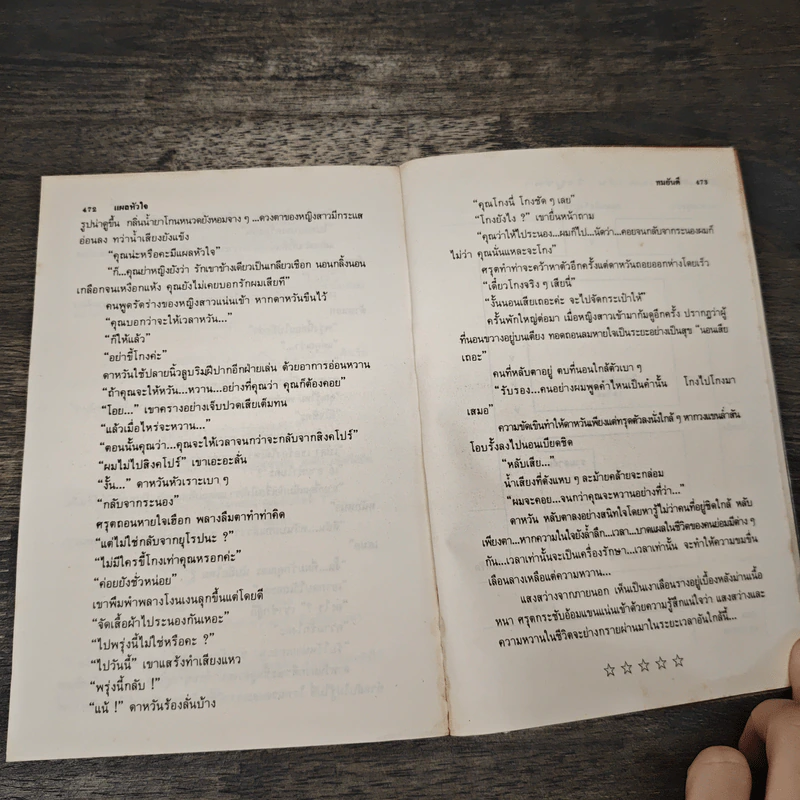 472 แผลหัวใจ
รูปน่าดูขึ้น กลิ่นน้ำยาโกนหนวดยังหอมจาง ๆ ...ดวงตาของหญิงสาวมีกระแส
อ่อนลง ทว่าน้ำเสียงยังแข็ง
“คุณน่ะหรือคะมีแผลหัวใจ”
“ก็...คุณย่าหญิงยังว่า รักเขาข้างเดียวเป็นเกลียวเชือก นอนกลิ้งนอน
เกลือกจนเหงื่อแห้ง คุณยังไม่เคยบอกรักผมเสียที”
คนพูดรัดร่างของหญิงสาวแน่นเข้า หากตาหวันขืนไว้
“คุณบอกว่าจะให้เวลาหวัน...”
“ก็ให้แล้ว”
“อย่าขี้โกงค่ะ”
ตาหวันใช้ปลายนิ้วลูบริมฝีปากอีกฝ่ายเล่น ด้วยอาการอ่อนหวาน
“ถ้าคุณจะให้หวัน...หวาน...อย่างที่คุณว่า คุณก็ต้องคอย”
“โอย...” เขาครางอย่างเจ็บปวดเสียเต็มทน
“แล้วเมื่อไหร่จะหวาน...”
“ตอนนั้นคุณว่า...คุณจะให้เวลาจนกว่าจะกลับจากสิงคโปร์”
“ผมไม่ไปสิงคโปร์” เขาเอะอะลั่น
“งั้น...” ตาหวันหัวเราะเบา ๆ
“กลับจากระนอง”
ศรุตถอนหายใจเฮือก พลางลืมตาทำท่าคิด
“แต่ไม่ใช่กลับจากยุโรปนะ ?”
“ไม่มีใครขี้โกงเท่าคุณหรอกค่ะ”
“ค่อยยังชั่วหน่อย”
เขาพึมพำพลางโงนเงนลุกขึ้นแต่โดยดี
“จัดเสื้อผ้าไประนองกันเหอะ”
“ไปพรุ่งนี้ไม่ใช่หรือคะ ?”
“ไปวันนี้” เขาแสร้งทำเสียงแหว
“พรุ่งนี้กลับ !”
“แน้ !” ตาหวันร้องลั่นบ้าง
ทมยันตี 473
“คุณโกงนี่ โกงชัด ๆ เลย”
“โกงยังไง ?” เขายื่นหน้าถาม
“คุณว่าให้ไประนอง...ผมก็ไป...นัดว่า...คอยจนกลับจากระนองผมก็
ไม่ว่า คุณนั่นแหละจะโกง”
ศรุตทำท่าจะคว้าหาตัวอีกครั้งแต่ตาหวันถอยออกห่างโดยเร็ว
“เดี๋ยวโกงจริง ๆ เสียนี่”
“งั้นนอนเสียเถอะค่ะ จะไปจัดกระเป๋าให้”
ครั้นพักใหญ่ต่อมา เมื่อหญิงสาวเข้ามาก้มดูอีกครั้ง ปรากฏว่าผู้
ที่นอนขวางอยู่บนเตียง ทอดถอนลมหายใจเป็นระยะอย่างเป็นสุข “นอนเสีย
เถอะ”
คนที่หลับตาอยู่ ตบที่นอนใกล้ตัวเบา ๆ
“รับรอง...คนอย่างผมพูดคำไหนเป็นคำนั้น โกงไปโกงมา
เสมอ”
ความขัดเขินทำให้ตาหวันเพียงแต่ทรุดตัวลงนั่งใกล้ ๆ หากวงแขนล่ำสัน
โอบรั้งลงไปนอนเบียดชิด
“หลับเสีย...”
น้ำเสียงที่ดังแหบ ๆ ละม้ายคล้ายจะกล่อม
“ผมจะคอย...จนกว่าคุณจะหวานอย่างที่ว่า...”
ตาหวัน หลับตาลงอย่างสนิทใจโดยหารู้ไม่ว่าคนที่อยู่ชิดใกล้ หลับ
เพียงตา...หากความในใจยังล้ำลึก...เวลา...บาดแผลในชีวิตของคนย่อมมีต่าง ๆ
กัน...เวลาเท่านั้นจะเป็นเครื่องรักษา...เวลาเท่านั้น จะทำให้ความขมขื่น
เลือนลางเหลือแต่ความหวาน...
แสงสว่างจากภายนอก เห็นเป็นเงาเลือนรางอยู่เบื้องหลังม่านเนื้อ
หนา ศรุตกระชับอ้อมแขนแน่นเข้าด้วยความรู้สึกแน่ใจว่า แสงสว่างและ
ความหวานในชีวิตจะย่างกรายผ่านมาในระยะเวลาอันใกล้นี้...
☆ ☆ ☆ ☆ ☆